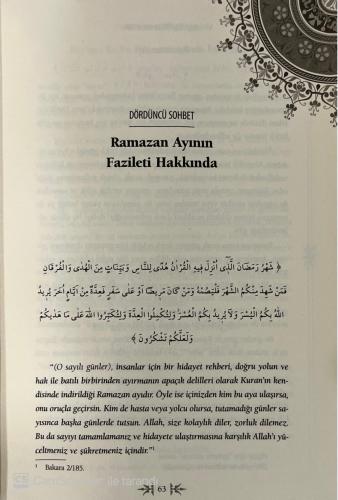 DÖRDÜNCÜ SOHBET
Ramazan Ayının
Fazileti Hakkında
﴿ شَهْرُ رَمَضَانَ الَّذِى اُنْزِلَ فِيهِ الْقُرْاٰنُ هُدًى لِلنَّاسِ وَبَيِّنَاتٍ مِنَ الْهُدٰى وَالْفُرْقَانِ
فَمَنْ شَهِدَ مِنْكُمُ الشَّهْرَ فَلْيَصُمْهُ وَمَنْ كَانَ مَرِيضًا اَوْ عَلٰى سَفَرٍ فَعِدَّةٌ مِنْ اَيَّامٍ اُخَرَ يُرِيدُ
اللّٰهُ بِكُمُ الْيُسْرَ وَلَا يُرِيدُ بِكُمُ الْعُسْرَ وَلِتُكْمِلُوا الْعِدَّةَ وَلِتُكَبِّرُوا اللّٰهَ عَلٰى مَا هَدٰيكُمْ
وَلَعَلَّكُمْ تَشْكُرُونَ ﴾
"(O sayılı günler), insanlar için bir hidayet rehberi, doğru yolun ve
hak ile batılı birbirinden ayırmanın apaçık delilleri olarak Kuran'ın ken-
disinde indirildiği Ramazan ayıdır. Öyle ise içinizden kim bu aya ulaşırsa,
onu oruçla geçirsin. Kim de hasta veya yolcu olursa, tutamadığı günler sa-
yısınca başka günlerde tutsun. Allah, size kolaylık diler, zorluk dilemez.
Bu da sayıyı tamamlamanız ve hidayete ulaştırmasına karşılık Allah'ı yü-
celtmeniz ve şükretmeniz içindir."¹
¹ Bakara 2/185.
63
ile tarandı